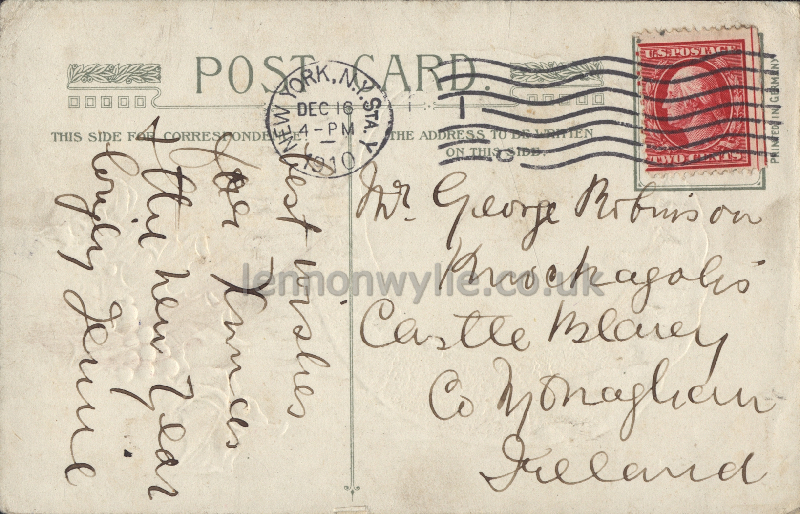 POST CARD.
THIS SIDE FOR CORRESPONDENCE
THE ADDRESS TO BE WRITTEN
ON THIS SIDE.
NEW YORK, N.Y. STA. Y
DEC 16
4-PM
1910
U.S. POSTAGE
TWO CENTS
PRINTED IN GERMANY
Mr George Robinson
Castle Blaney
Co Monaghan
Ireland
best wishes
for Xmas
& the New Year
Jennie
lennonwylie.co.uk